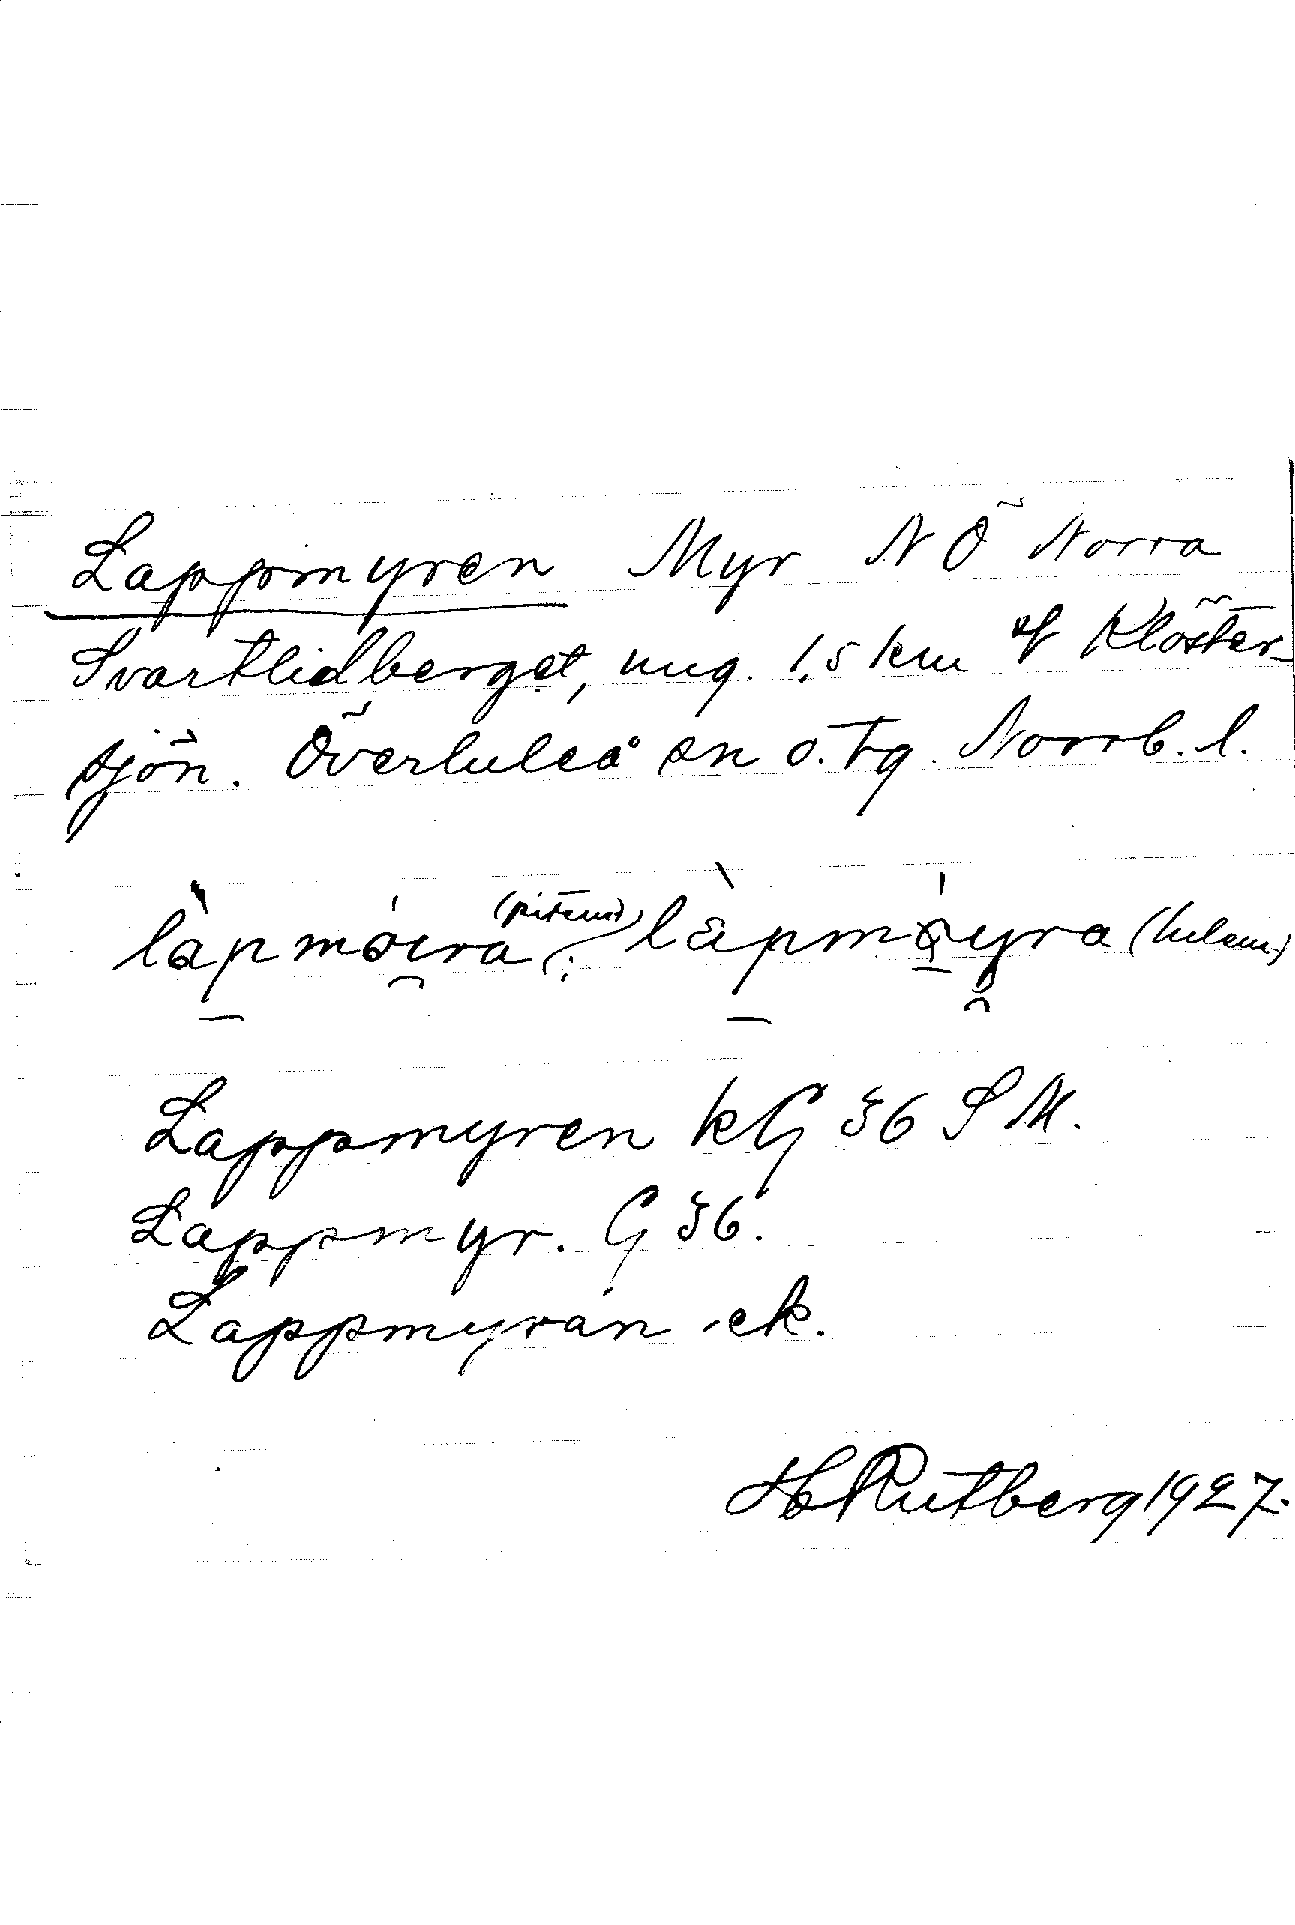 Lappmyren Myr NÖ Norra
Svartlidberget, ung. 1,5 km Klöster-
sjön. Överluleå sn o. tg. Norrb. l.
làpmǿi̯ra (pitem); làpmǿy̯ra (lulem)
Lappmyren kG 36 SM.
Lappmyr. G 36.
Lappmyran ek.
H Rutberg 1927.